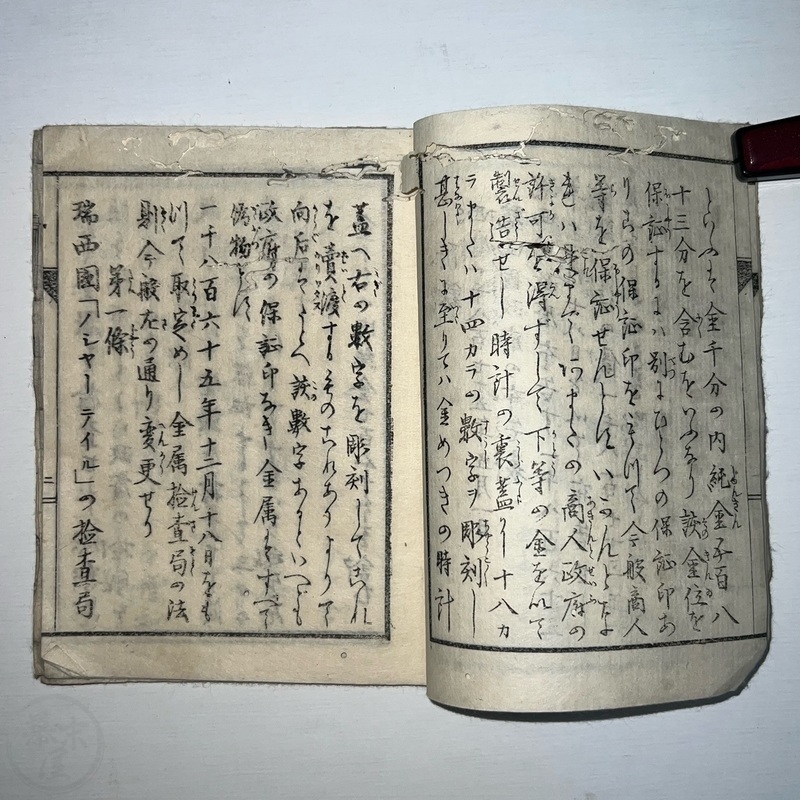 金千分の内純金五百八
十三分を含むをいふなり該金位を
保証するには別にひとつの保証印あ
りこの保証印をもつて今般商人
等を保証せんとすいかんとな
れは是まてあまたの商人政府の
許可を得すして下等の金を以て
製造せし時計の裏蓋に十八カ
ラまたは十四カラの数字ヲ彫刻し
甚しきに至りては金めつきの時計
蓋へ右の數字を彫刻してこれ
を賣渡するものこれありよりて
向后はたとへ該數字ありといへとも
政府の保証印なき金属はすべて
偽物とす
一千八百六十五年十二月十八日をも
つて取定めし金属検査局の法
則今般左の通り変更せり
第一條
瑞西國「ノシャーテイル」の検査局